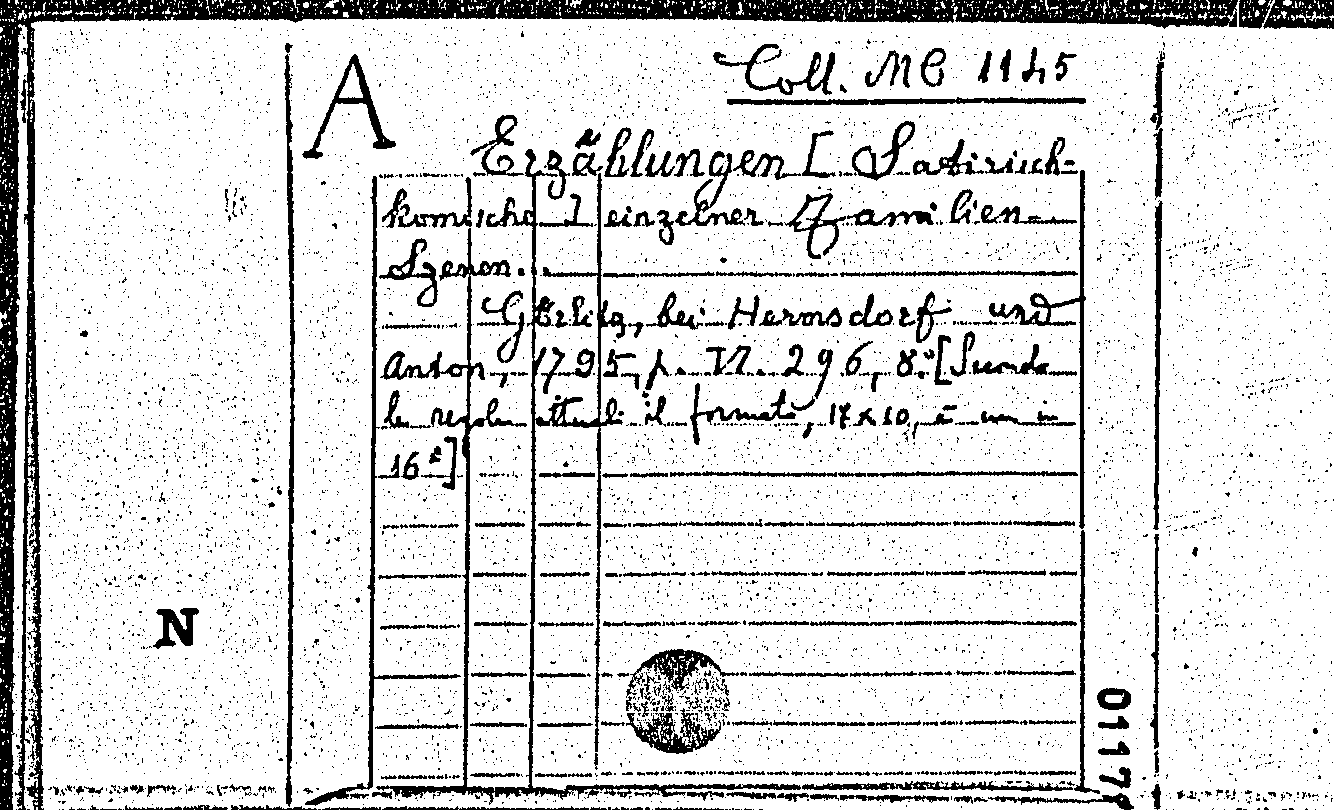 A
Coll. MC 1145
Erzählungen [ Satirisch-
komische ] einzelner Familien-
Szenen...
Görlitz, bei Hermsdorf und
Anton, 1795, p. VI. 296, 8.° [Secondo
le regole attuali il formato, 17x10, è un in
16°]
N
0117